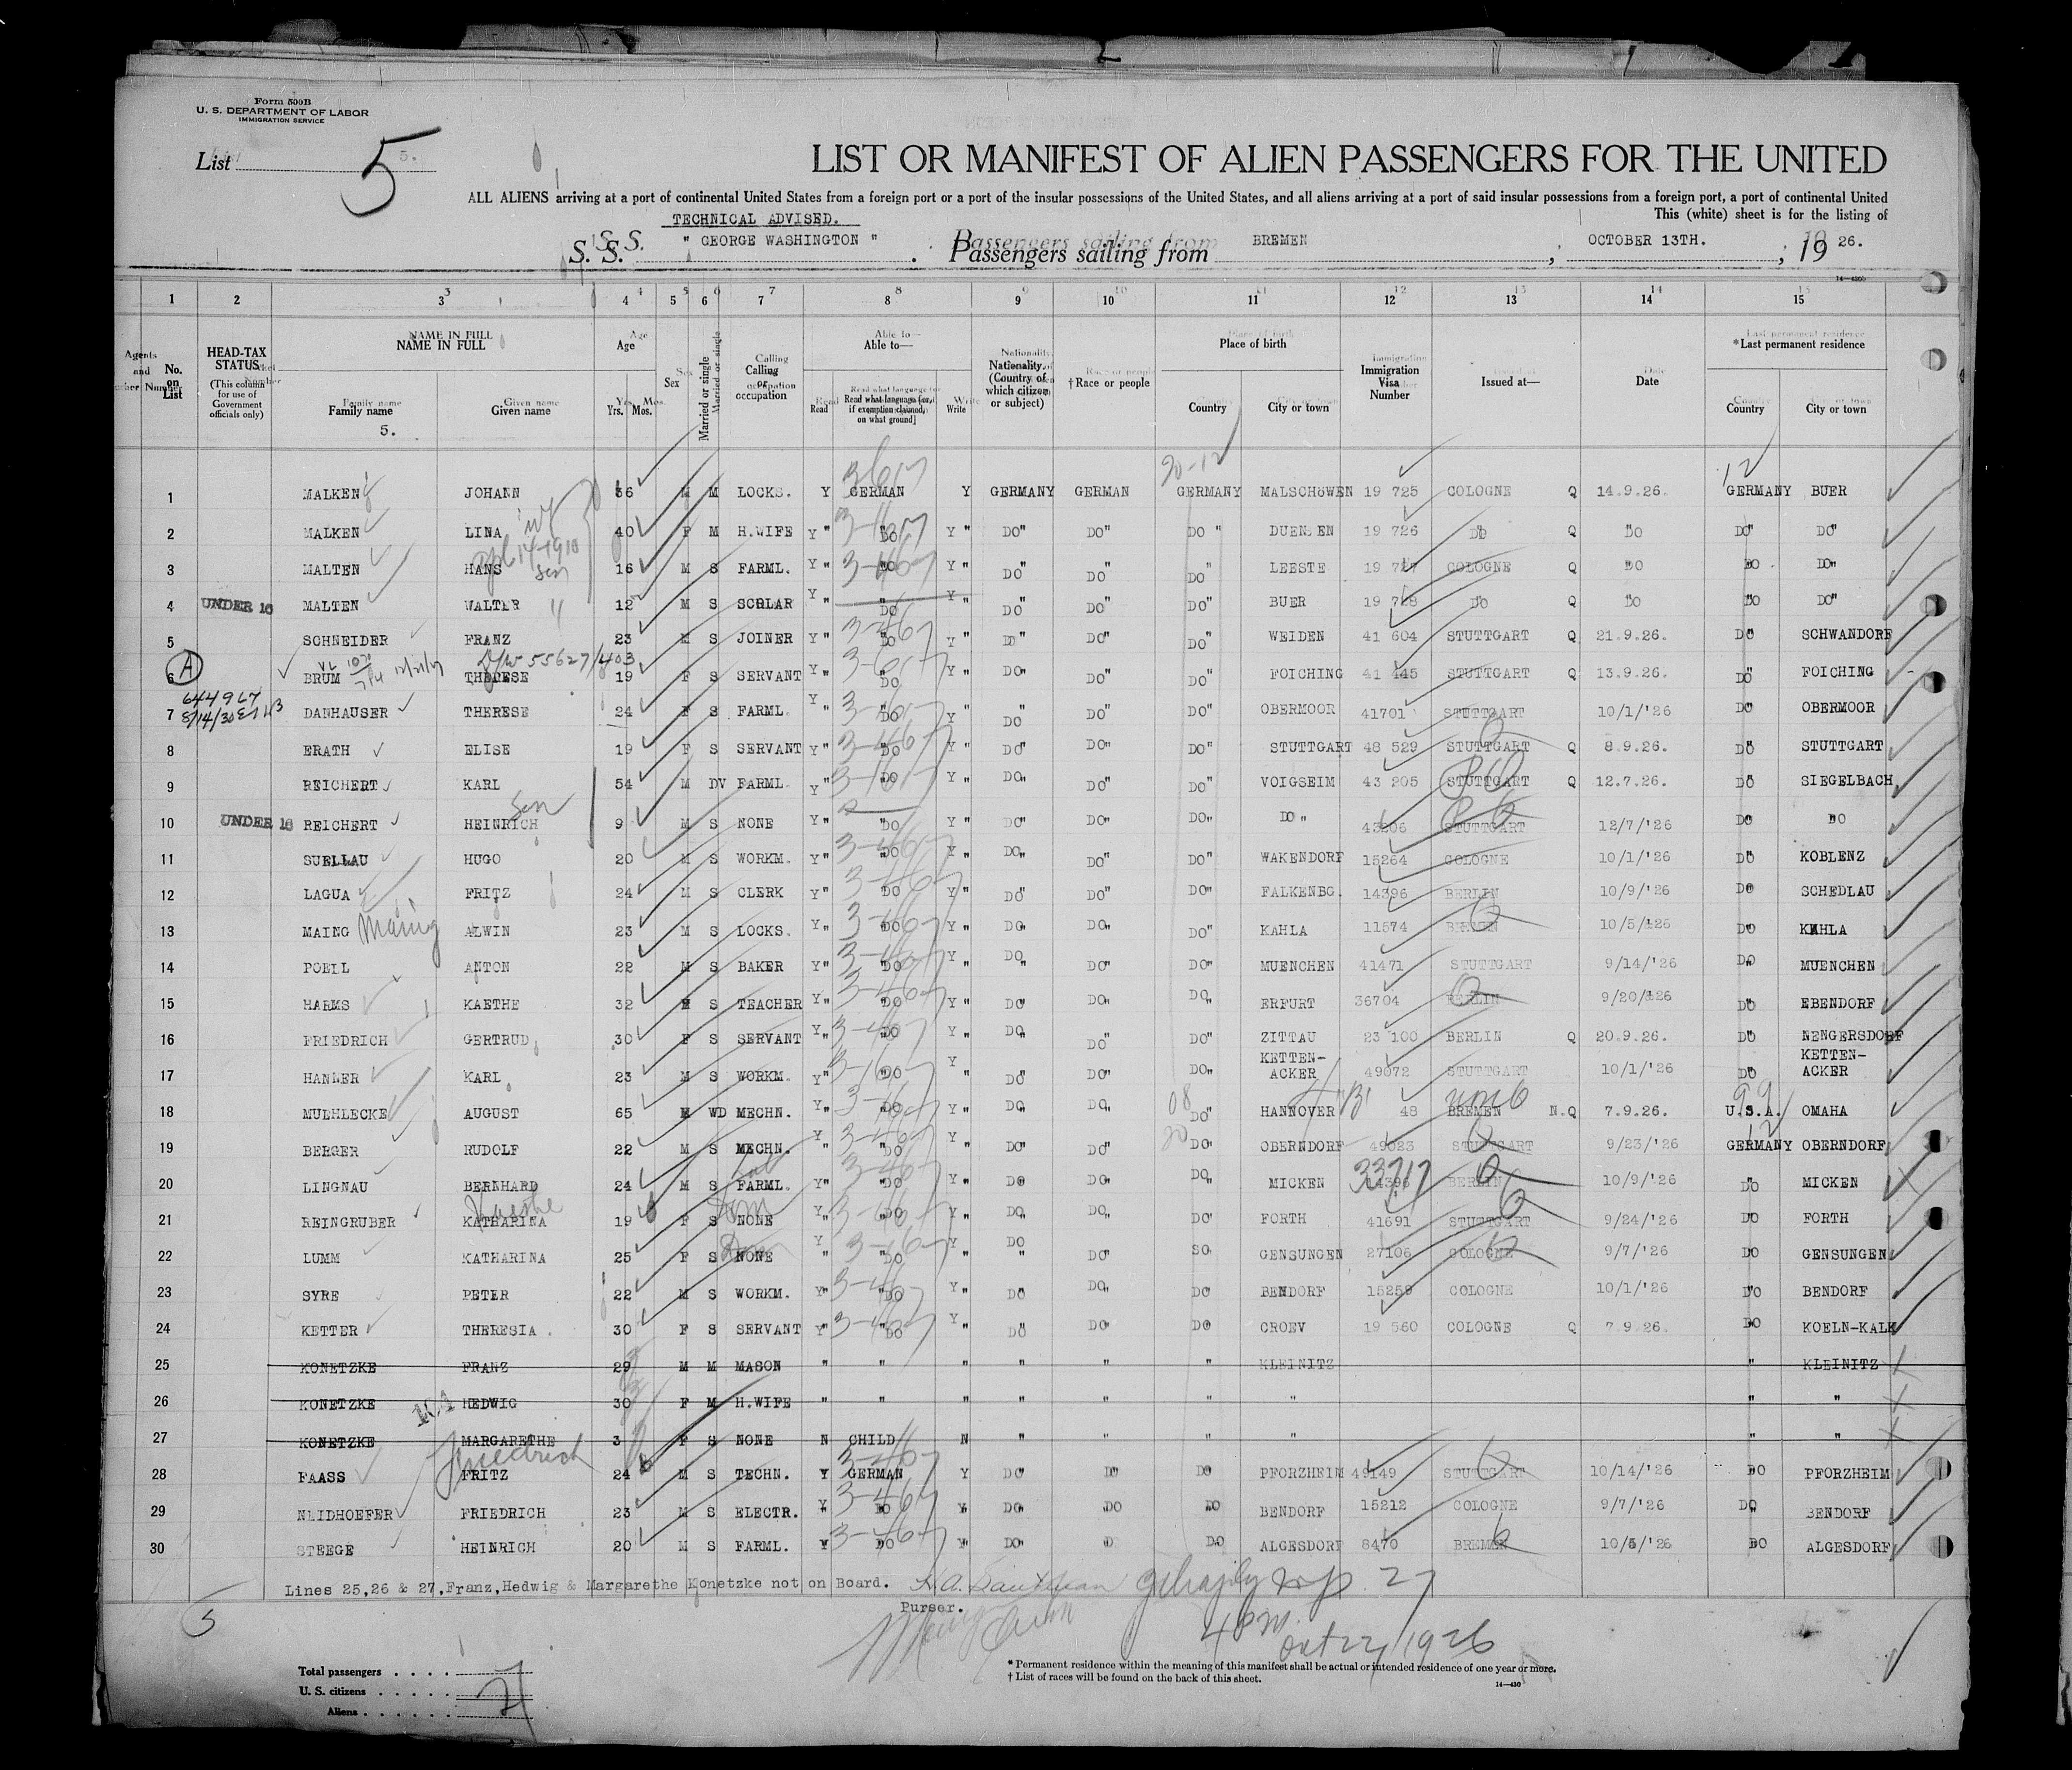 Form 500B
U. S. DEPARTMENT OF LABOR
IMMIGRATION SERVICE
List 5
LIST OR MANIFEST OF ALIEN PASSENGERS FOR THE UNITED
ALL ALIENS arriving at a port of continental United States from a foreign port or a port of the insular possessions of the United States, and all aliens arriving at a port of said insular possessions from a foreign port, a port of continental United
This (white) sheet is for the listing of
TECHNICAL ADVISED.
S. S. " GEORGE WASHINGTON " . Passengers sailing from BREMEN , OCTOBER 13TH. , 19 26.
1 2 3 4 5 6 7 8 9 10 11 12 13 14 15
No. on List HEAD-TAX STATUS (This column for use of Government officials only) NAME IN FULL Family name Given name Age Yrs. Mos. Sex Married or single Calling or occupation Able to— Read Read what language [or, if exemption claimed, on what ground] Write Nationality. (Country of which citizen or subject) †Race or people Place of birth Country City or town Immigration Visa Number Issued at— Date *Last permanent residence Country City or town
5.
1 MALKEN JOHANN 36 M M LOCKS. Y GERMAN Y GERMANY GERMAN GERMANY MALSCHöWEN 19 725 COLOGNE Q 14.9.26. GERMANY BUER
2 MALKEN LINA 40 F M H.WIFE Y " DO Y " DO" DO" DO " DUENSEN 19 726 DO Q DO DO" DO"
3 MALTEN HANS 16 M S FARML. Y " DO Y " DO" DO" DO" LEESTE 19 727 COLOGNE Q DO DO DO"
4 UNDER 16 MALTEN WALTER 12 M S SCHLAR Y " DO Y " DO" DO" DO" BUER 19 728 DO Q DO DO DO"
5 SCHNEIDER FRANZ 23 M S JOINER Y " DO Y " DO" DO" DO" WEIDEN 41 604 STUTTGART Q 21.9.26. DO SCHWANDORF
6 BRUM THERESE 19 F S SERVANT Y " DO Y " DO" DO" DO" FOICHING 41 445 STUTTGART Q 13.9.26. DO FOICHING
7 DANHAUSER THERESE 24 F S FARML. Y " DO Y " DO" DO" DO" OBERMOOR 41701 STUTTGART 10/1/'26 DO OBERMOOR
8 ERATH ELISE 19 F S SERVANT Y " DO Y " DO" DO" DO" STUTTGART 48 529 STUTTGART Q 8.9.26. DO STUTTGART
9 REICHERT KARL 54 M DV FARML. Y " DO Y " DO" DO" DO" VOIGSEIM 43 205 STUTTGART Q 12.7.26. DO SIEGELBACH
10 UNDER 16 REICHERT HEINRICH 9 M S NONE Y " DO Y " DO" DO" DO" DO " 43206 STUTTGART 12/7/'26 DO DO
11 SUELLAU HUGO 20 M S WORKM. Y " DO Y " DO" DO" DO" WAKENDORF 15264 COLOGNE 10/1/'26 DO KOBLENZ
12 LAGUA FRITZ 24 M S CLERK Y " DO Y " DO" DO" DO" FALKENBG. 14396 BERLIN 10/9/'26 DO SCHEDLAU
13 MAING Maing ALWIN 23 M S LOCKS. Y " DO Y " DO" DO" DO" KAHLA 11574 BERLIN 10/5/'26 DO KAHLA
14 POELL ANTON 22 M S BAKER Y " DO Y " DO" DO" DO" MUENCHEN 41471 STUTTGART 9/14/'26 DO MUENCHEN
15 HARMS KAETHE 32 S TEACHER Y " DO Y " DO" DO" DO" ERFURT 36704 BERLIN 9/20/'26 DO EBENDORF
16 FRIEDRICH GERTRUD 30 F S SERVANT Y " DO Y " DO" DO" DO" ZITTAU 23 100 BERLIN Q 20.9.26. DO NENGERSDORF
17 HANLER KARL 23 M S WORKM. Y " DO Y " DO" DO" DO" KETTEN-ACKER 49072 STUTTGART 10/1/'26 DO KETTEN-ACKER
18 MUEHLECKE AUGUST 65 M WD MECHN. Y " DO Y " DO" DO" DO" HANNOVER 48 BREMEN N.Q 7.9.26. U.S.A. OMAHA
19 BERGER RUDOLF 22 M S MECHN. Y " DO Y " DO" DO" DO" OBERNDORF 49023 STUTTGART 9/23/'26 GERMANY OBERNDORF
20 LINGNAU BERNHARD 24 M S FARML. Y " DO Y " DO DO" DO" MICKEN 33717 BERLIN 10/9/'26 DO MICKEN
21 REINGRUBER Kaethe KATHARINA 19 F S NONE Dom Y " DO Y " DO" DO" DO" FORTH 41691 STUTTGART 9/24/'26 DO FORTH
22 LUMM KATHARINA 25 F S NONE Dom Y " DO Y " DO " DO" GENSUNGEN 27106 COLOGNE 9/7/'26 DO GENSUNGEN
23 SYRE PETER 22 M S WORKM. Y " DO Y " DO" DO" DO BENDORF 15259 COLOGNE 10/1/'26 DO BENDORF
24 KETTER THERESIA. 30 F S SERVANT Y " DO Y " DO" DO" DO CROEV 19 560 COLOGNE Q 7.9.26. DO KOELN-KALK
25 KONETZKE FRANZ 29 M M MASON " " " " " " KLEINITZ " KLEINITZ
26 KONETZKE HEDWIG 30 F M H.WIFE " " " " " " " " "
27 KONETZKE MARGARETHE 3 F S NONE N CHILD N " " " " " "
28 FAASS Friedrich FRITZ 24 M S TECHN. Y GERMAN Y DO" DO DO PFORZHEIM 49149 STUTTGART 10/14/'26 DO PFORZHEIM
29 NEIDHOEFER FRIEDRICH 23 M S ELECTR. Y " DO Y " DO" DO DO BENDORF 15212 COLOGNE 9/7/'26 DO BENDORF
30 STEEGE HEINRICH 20 M S FARML. Y DO Y DO" DO DO ALGESDORF 8470 BREMEN 10/5/'26 DO ALGESDORF
Lines 25,26 & 27,Franz,Hedwig & Margarethe Konetzke not on Board.
Purser.
4 PM Oct 22, 1926
Total passengers
U. S. citizens
Aliens
* Permanent residence within the meaning of this manifest shall be actual or intended residence of one year or more.
† List of races will be found on the back of this sheet.
14—430